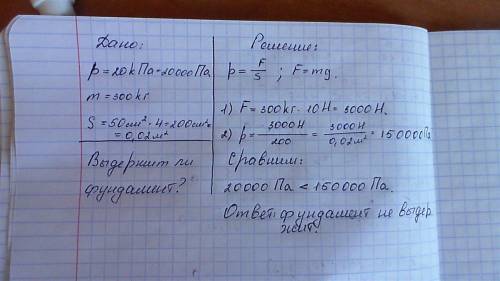 Дано:
p = 20кПа=20000Па
m = 300кг
S = 50см²·4=200см²=
= 0,02м²
Выдержит ли
фундамент?
Решение:
p = F/S ; F=mg.
1) F = 300кг · 10Н = 3000Н.
2) p = 3000Н/200 = 3000Н/0,02м² = 150000Па
Сравним:
20000 Па < 150000 Па.
Ответ: фундамент не выдер
жит.